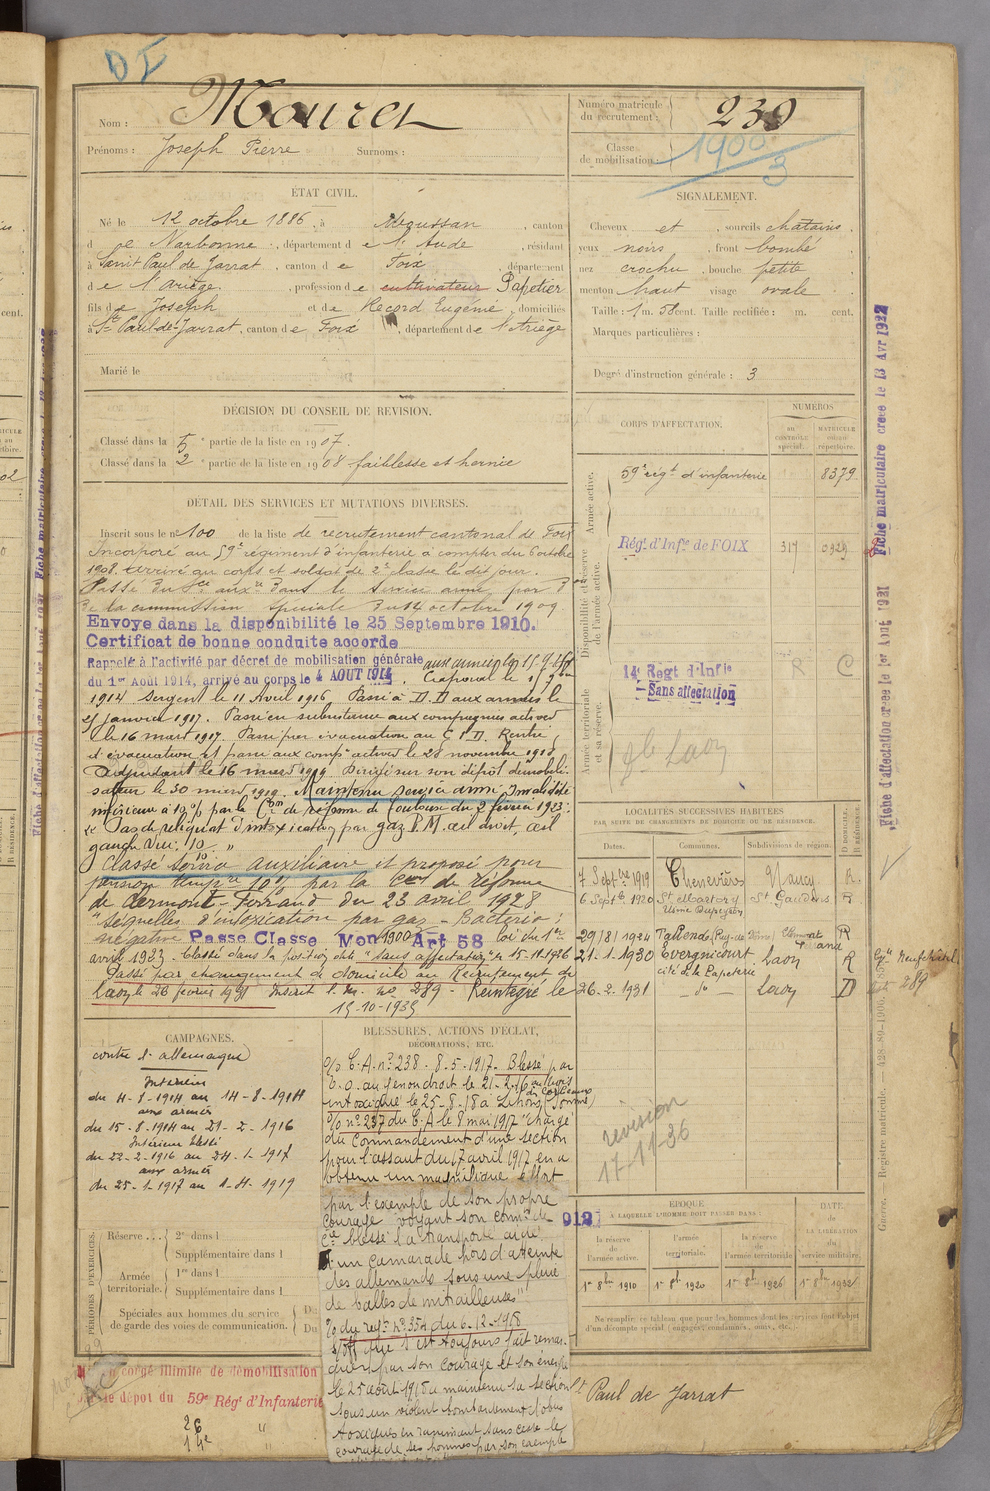 DI
Nom : Mauret
Prénoms : Joseph Pierre Surnoms :
Numéro matricule du recrutement : 239
Classe de mobilisation : 1900/3
ÉTAT CIVIL.
Né le 12 octobre 1886, à canton
d de Narbonne, département d e l'Aude, résidant
à Saint Paul de Jarrat, canton d e Foix, département
d e l'Ariège, profession d e cultivateur Papetier
fils d e Joseph et d e Record Eugénie, domiciliés
à St Paul-de-Jarrat, canton d e Foix, département d e l'Ariège
Marié le
SIGNALEMENT.
Cheveux et , sourcils chatains,
yeux noirs, front bombé
nez crochu, bouche petite,
menton haut visage ovale
Taille : 1 m. 58 cent. Taille rectifiée : m. cent.
Marques particulières :
Degré d'instruction générale : 3
DÉCISION DU CONSEIL DE REVISION.
Classé dans la 5e partie de la liste en 1907.
Classé dans la 2e partie de la liste en 1908 faiblesse et hernie
DÉTAIL DES SERVICES ET MUTATIONS DIVERSES.
Inscrit sous le n° 100 de la liste de recrutement cantonal de Foix
Incorporé au 59e régiment d'infanterie à compter du 6 octobre
1908. Arrivé au corps et soldat de 2e classe le dit jour.
Passé du Sce auxre dans le service armé par
de la commission spéciale du 14 octobre 1909
Envoyé dans la disponibilité le 25 Septembre 1910.
Certificat de bonne conduite accordé
Rappelé à l'activité par décret de mobilisation générale
du 1er Août 1914, arrivé au corps le 4 AOUT 1914 Caporal le
1914 Sergent le 11 Avril 1916 Passé à D.D aux armées le
25 janvier 1917. Passé en subsistance aux compagnies actives
le 16 mars 1917. Passé par évacuation au C I D. Rentré
d'évacuation et passé aux comps actives le 28 novembre 1918
Adjudant le 16 mars 1919. Dirigé sur son dépôt démobili-
sateur le 30 mars 1919. Maintenu service armé Invalidité
inférieure à 10% par la Con de réforme de Toulouse du 2 février 1923.
"Pas de reliquat d'intoxication par gaz P.M. œil droit, œil
gauche Vu: 10 "
Classé service auxiliaire et proposé pour
pension tempre 10% par la Con de réforme
de Clermont-Ferrand du 23 avril 1928
"séquelles d'intoxication par gaz - Bacterio :
négative Passé Classe Mon 1900 Art 58 loi du 1er
avril 1923. Classé dans la position dite "sans affectation" le 15.11.1926
Passé par changement de domicile au Recrutement de
Laon le 26 février 1931 Inscrit l. m. no 289 - Réintégré le
15-10-1935
CORPS D'AFFECTATION.
NUMÉROS
AU CONTRÔLE spécial.
MATRICULE au répertoire.
Armée active.
59e régt d'infanterie 8379
Disponibilité et réserve de l'armée active.
Régt d'Infie de FOIX 317 0323
Armée territoriale et sa réserve.
14e Regt d'Infie R C
Sans affectation
Laon
LOCALITÉS SUCCESSIVES HABITÉES
PAR SUITE DE CHANGEMENTS DE DOMICILE OU DE RÉSIDENCE.
Dates. Communes. Subdivisions de région. D DOMICILE. R RÉSIDENCE.
7 Septbre 1919 Chenevières Nancy R.
6 Septe 1920 St Martory St Gaudens R
Usine Dupeyron
29/8/1924 Tallende (Puy-de-Dôme) Clermont Ferrand R
21.1.1930 Evergnicourt Laon R
cité de la Papeterie
26.2.1931 - do - Laon D
Con Neufchâtel
289
CAMPAGNES.
contre l'allemagne
Intérieur
du 4-8-1914 au 14-8-1914
aux armées
du 15-8-1914 au 21-2-1916
Intérieur blessé
du 22-2-1916 au 24-1-1917
aux armées
du 25-1-1917 au 1-4-1919
BLESSURES, ACTIONS D'ÉCLAT,
DÉCORATIONS, ETC.
o/o C.A. n° 238. 8-5-1917. Blessé par
E.O. au genou droit le 21-2-16 au bois des Corbeaux
intoxiqué le 25-8-18 à Lihons (Somme)
o/o n° 237 du C.A le 8 mai 1917 "chargé
du Commandement d'une section
pour l'assaut du 17 avril 1917 en a
obtenu un magnifique effort
par l'exemple de son propre
courage voyant son comt de
Cie blessé l'a transporté aidé
d'un camarade hors d'atteinte
des allemands sous une pluie
de balles de mitrailleuses"
O/ du régt n° 354 du 6-12-1918
s/off qui s'est toujours fait remar-
quer par son courage et son énergie
le 25 août 1918 a maintenu sa section
sous un violent bombardement d'obus
toxiques en ranimant sans cesse le
courage de ses hommes par son exemple
PÉRIODES D'EXERCICES.
Réserve... 2e dans l
Supplémentaire dans l
Armée territoriale. 1re dans l
Supplémentaire dans l
Spéciales aux hommes du service de garde des voies de communication. Du Du
révision
17-11-36
912
ÉPOQUE
À LAQUELLE L'HOMME DOIT PASSER DANS
la réserve de l'armée active. l'armée territoriale. la réserve de l'armée territoriale
DATE de la LIBÉRATION du service militaire.
1er 8bre 1910 1er 8bre 1920 1er 8bre 1926 1er 8bre 1932
Ne remplir ce tableau que pour les hommes dont les services font l'objet
d'un décompte spécial (engagés, condamnés, omis, etc.
congé illimité de démobilisation
le dépôt du 59e Régt d'Infanterie
St Paul de Jarrat
Fiche matriculaire créée le 13 Avr 1922
Fiche d'affectation créée le 1er Août 1921